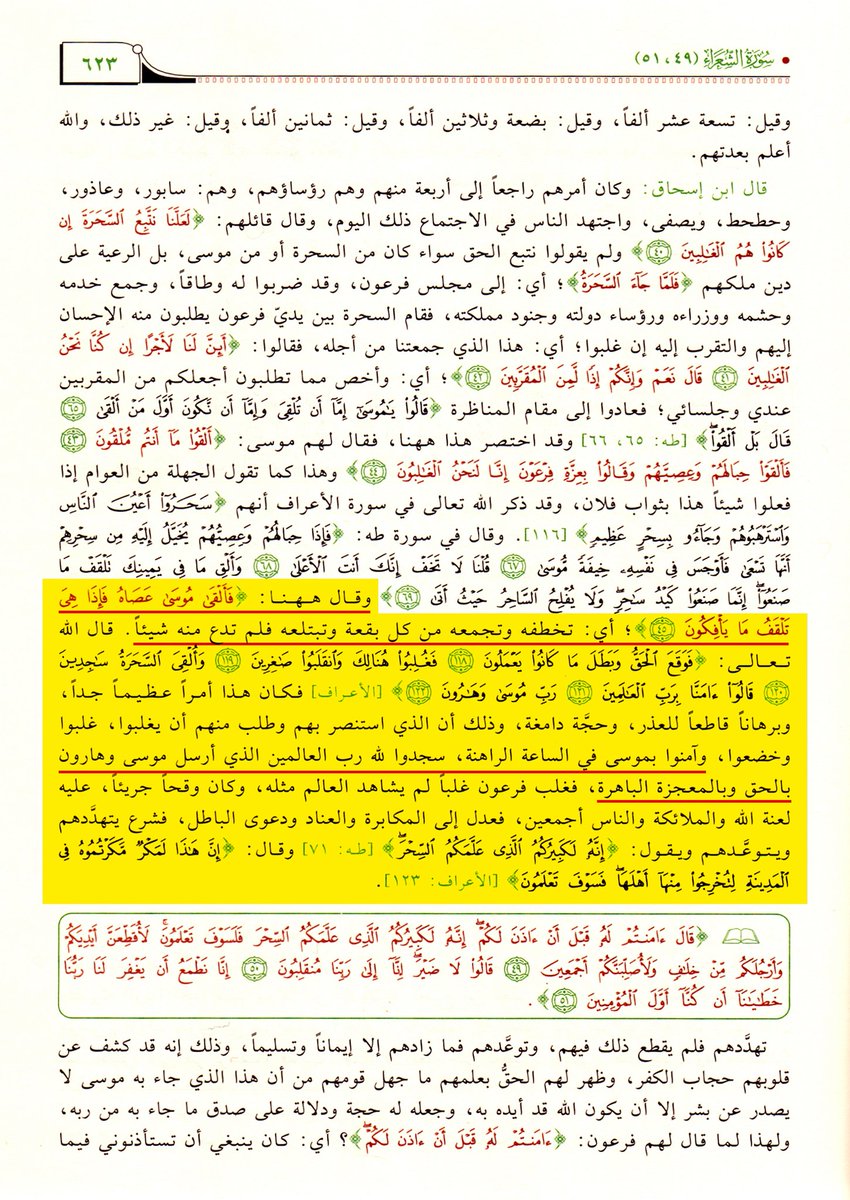 سُورَةُ الشُّعَرَاءِ (٤٩، ٥١)
٦٢٣
وقيل: تسعة عشر ألفاً، وقيل: بضعة وثلاثين ألفاً، وقيل: ثمانين ألفاً، وقيل: غير ذلك، والله
أعلم بعدتهم.
قال ابن إسحاق: وكان أمرهم راجعاً إلى أربعة منهم وهم رؤساؤهم، وهم: سابور، وعاذور،
وحطحط، ويصفى، واجتهد الناس في الاجتماع ذلك اليوم، وقال قائلهم: ﴿لَعَلَّنَا نَتَّبِعُ ٱلسَّحَرَةَ إِن
كَانُوا۟ هُمُ ٱلْغَـٰلِبِينَ ٤٠﴾ ولم يقولوا نتبع الحق سواء كان من السحرة أو من موسى، بل الرعية على
دين ملكهم ﴿فَلَمَّا جَآءَ ٱلسَّحَرَةُ﴾؛ أي: إلى مجلس فرعون، وقد ضربوا له وطاقاً، وجمع خدمه
وحشمه ووزراءه ورؤساء دولته وجنود مملكته، فقام السحرة بين يديّ فرعون يطلبون منه الإحسان
إليهم والتقرب إليه إن غلبوا؛ أي: هذا الذي جمعتنا من أجله، فقالوا: ﴿أَئِنَّ لَنَا لَأَجْرًا إِن كُنَّا نَحْنُ
ٱلْغَـٰلِبِينَ ٤١ قَالَ نَعَمْ وَإِنَّكُمْ إِذًا لَّمِنَ ٱلْمُقَرَّبِينَ ٤٢﴾؛ أي: وأخص مما تطلبون أجعلكم من المقربين
عندي وجلسائي؛ فعادوا إلى مقام المناظرة ﴿قَالُوا۟ يَـٰمُوسَىٰٓ إِمَّآ أَن تُلْقِىَ وَإِمَّآ أَن نَّكُونَ أَوَّلَ مَنْ أَلْقَىٰ ٦٥
قَالَ بَلْ أَلْقُوا۟﴾ [طه: ٦٥، ٦٦] وقد اختصر هذا ههنا، فقال لهم موسى: ﴿أَلْقُوا۟ مَآ أَنتُم مُّلْقُونَ ٤٣
فَأَلْقَوْا۟ حِبَالَهُمْ وَعِصِيَّهُمْ وَقَالُوا۟ بِعِزَّةِ فِرْعَوْنَ إِنَّا لَنَحْنُ ٱلْغَـٰلِبُونَ ٤٤﴾ وهذا كما تقول الجهلة من العوام إذا
فعلوا شيئاً هذا بثواب فلان، وقد ذكر الله تعالى في سورة الأعراف أنهم ﴿سَحَرُوٓا۟ أَعْيُنَ ٱلنَّاسِ
وَٱسْتَرْهَبُوهُمْ وَجَآءُو بِسِحْرٍ عَظِيمٍ﴾ [١١٦]. وقال في سورة طه: ﴿فَإِذَا حِبَالُهُمْ وَعِصِيُّهُمْ يُخَيَّلُ إِلَيْهِ مِن سِحْرِهِمْ
أَنَّهَا تَسْعَىٰ فَأَوْجَسَ فِى نَفْسِهِۦ خِيفَةً مُّوسَىٰ ٦٧ قُلْنَا لَا تَخَفْ إِنَّكَ أَنتَ ٱلْأَعْلَىٰ ٦٨ وَأَلْقِ مَا فِى يَمِينِكَ تَلْقَفْ مَا
صَنَعُوٓا۟ إِنَّمَا صَنَعُوا۟ كَيْدُ سَـٰحِرٍ وَلَا يُفْلِحُ ٱلسَّاحِرُ حَيْثُ أَتَىٰ ٦٩﴾ وقال ههنا: ﴿فَأَلْقَىٰ مُوسَىٰ عَصَاهُ فَإِذَا هِىَ
تَلْقَفُ مَا يَأْفِكُونَ ٤٥﴾؛ أي: تخطفه وتجمعه من كل بقعة وتبتلعه فلم تدع منه شيئاً. قال الله
تعالى: ﴿فَوَقَعَ ٱلْحَقُّ وَبَطَلَ مَا كَانُوا۟ يَعْمَلُونَ ١١٨ فَغُلِبُوا۟ هُنَالِكَ وَٱنقَلَبُوا۟ صَـٰغِرِينَ ١١٩ وَأُلْقِىَ ٱلسَّحَرَةُ سَـٰجِدِينَ
١٢٠ قَالُوٓا۟ ءَامَنَّا بِرَبِّ ٱلْعَـٰلَمِينَ ١٢١ رَبِّ مُوسَىٰ وَهَـٰرُونَ ١٢٢﴾ [الأعراف] فكان هذا أمراً عظيماً جداً،
وبرهاناً قاطعاً للعذر، وحجَّة دامغة، وذلك أن الذي استنصر بهم وطلب منهم أن يغلبوا، غلبوا
وخضعوا، وآمنوا بموسى في الساعة الراهنة، سجدوا لله رب العالمين الذي أرسل موسى وهارون
بالحق وبالمعجزة الباهرة، فغلب فرعون غلباً لم يشاهد العالم مثله، وكان وقحاً جريئاً، عليه
لعنة الله والملائكة والناس أجمعين، فعدل إلى المكابرة والعناد ودعوى الباطل، فشرع يتهدَّدهم
ويتوعَّدهم ويقول: ﴿إِنَّهُۥ لَكَبِيرُكُمُ ٱلَّذِى عَلَّمَكُمُ ٱلسِّحْرَ﴾ [طه: ٧١] وقال: ﴿إِنَّ هَـٰذَا لَمَكْرٌ مَّكَرْتُمُوهُ فِى
ٱلْمَدِينَةِ لِتُخْرِجُوا۟ مِنْهَآ أَهْلَهَا فَسَوْفَ تَعْلَمُونَ﴾ [الأعراف: ١٢٣].
﴿قَالَ ءَامَنتُمْ لَهُۥ قَبْلَ أَنْ ءَاذَنَ لَكُمْ إِنَّهُۥ لَكَبِيرُكُمُ ٱلَّذِى عَلَّمَكُمُ ٱلسِّحْرَ فَلَسَوْفَ تَعْلَمُونَ لَأُقَطِّعَنَّ أَيْدِيَكُمْ
وَأَرْجُلَكُم مِّنْ خِلَـٰفٍ وَلَأُصَلِّبَنَّكُمْ أَجْمَعِينَ ٤٩ قَالُوا۟ لَا ضَيْرَ إِنَّآ إِلَىٰ رَبِّنَا مُنقَلِبُونَ ٥٠ إِنَّا نَطْمَعُ أَن يَغْفِرَ لَنَا رَبُّنَا
خَطَـٰيَـٰنَآ أَن كُنَّآ أَوَّلَ ٱلْمُؤْمِنِينَ ٥١﴾.
تهدَّدهم فلم يقطع ذلك فيهم، وتوعَّدهم فما زادهم إلا إيماناً وتسليماً، وذلك إنه قد كشف عن
قلوبهم حجاب الكفر، وظهر لهم الحقُّ بعلمهم ما جهل قومهم من أن هذا الذي جاء به موسى لا
يصدر عن بشر إلا أن يكون الله قد أيده به، وجعله له حجة ودلالة على صدق ما جاء به من ربه،
ولهذا لما قال لهم فرعون: ﴿ءَامَنتُمْ لَهُۥ قَبْلَ أَنْ ءَاذَنَ لَكُمْ﴾؟ أي: كان ينبغي أن تستأذنوني فيما